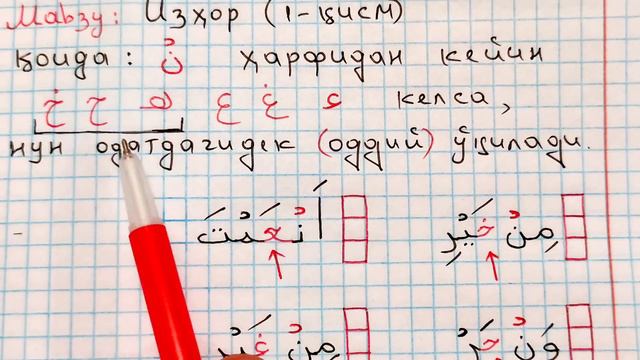 Мавзу: Изҳор (1-қисм)
Қоида: نْ ҳарфидан кейин
خ ح ه ع غ ء келса,
нун одатдагидек (оддий) ўқилади.
أَنْعَمْتَ مِنْ خَيْرٍ
مِنْ